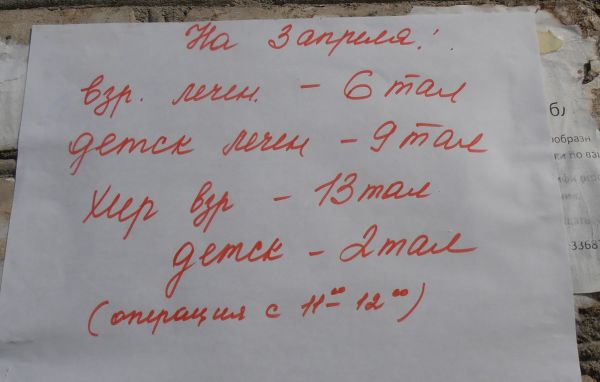 На 3 апреля!
взр. лечен. - 6 тал
детск лечен - 9 тал
Хир взр - 13 тал
детск - 2 тал
(операция с 11⁰⁰ - 12⁰⁰)
бл
ообразн
3368